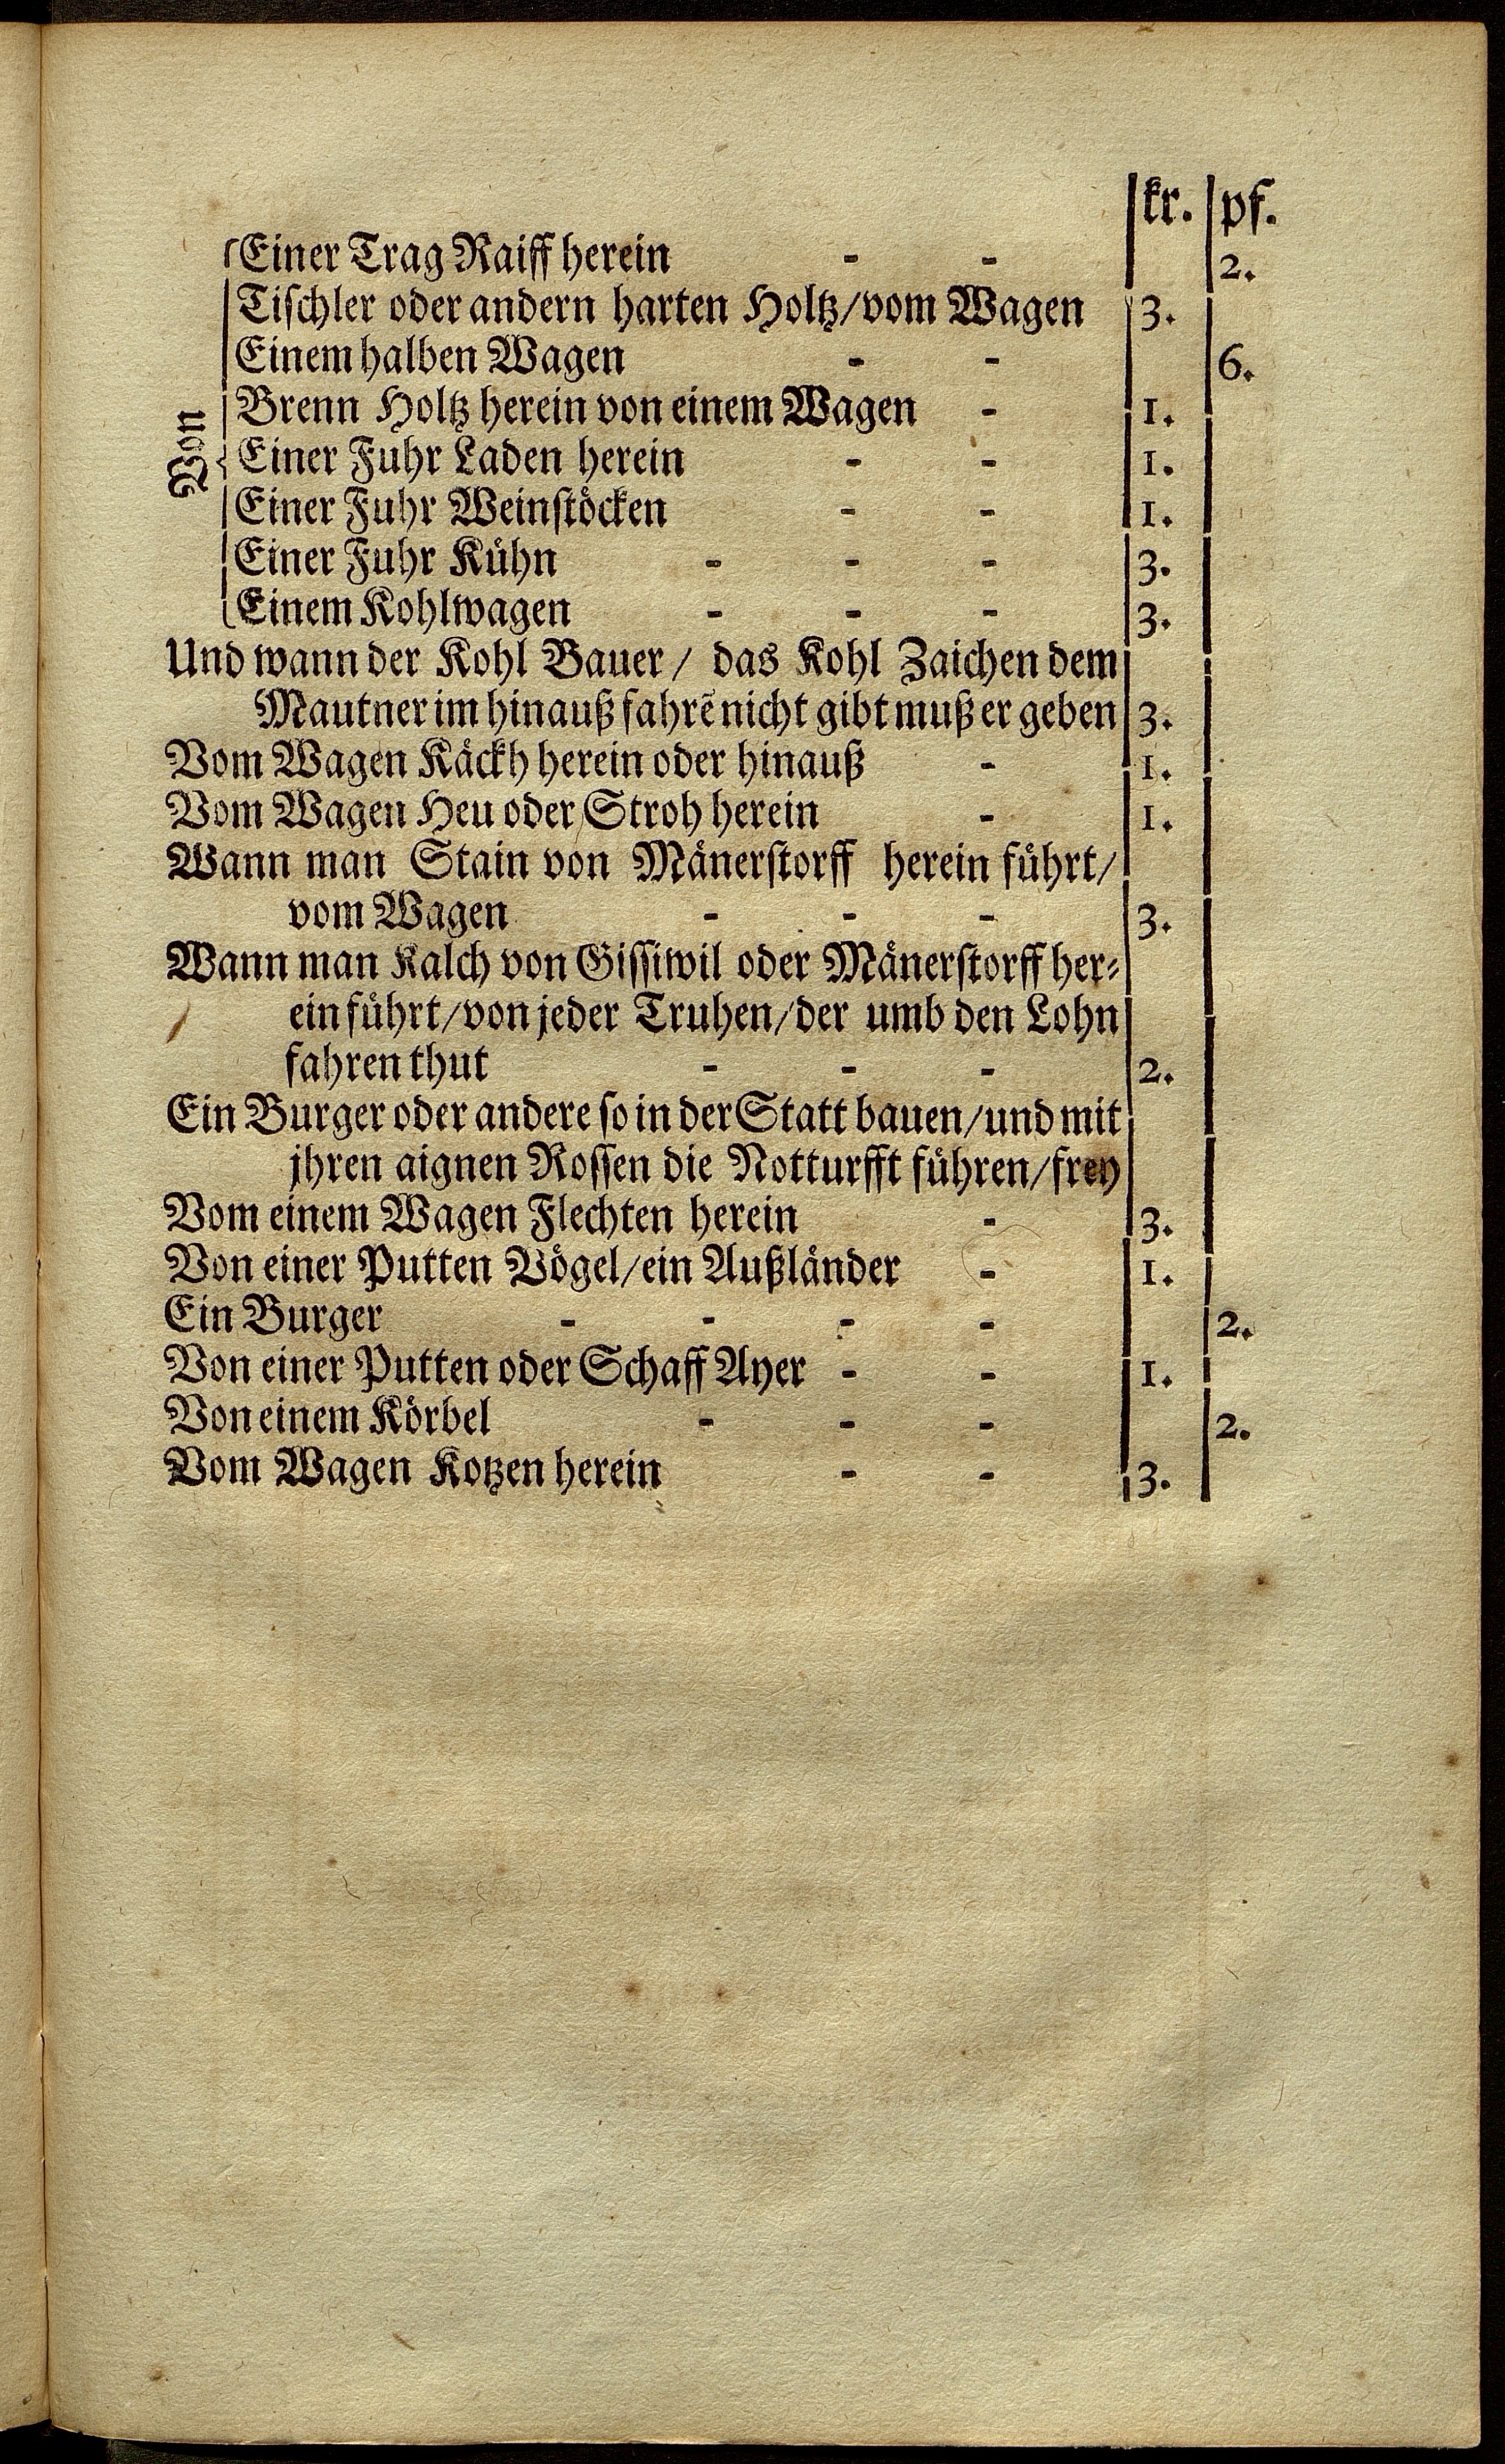 kr. pf.
Einer Trag Raiff herein - - 2.
Tischler oder andern harten Holtz/vom Wagen 3.
Einem halben Wagen - - 6.
Brenn Holtz herein von einem Wagen - 1.
Von
Einer Fuhr Laden herein - - 1.
Einer Fuhr Weinstöcken - - 1.
Einer Fuhr Kühn - - - 3.
Einem Kohlwagen - - - 3.
Und wann der Kohl Bauer / das Kohl Zaichen dem
Mautner im hinauß fahrẽ nicht gibt muß er geben 3.
Vom Wagen Käckh herein oder hinauß - 1.
Vom Wagen Heu oder Stroh herein - 1.
Wann man Stain von Mänerstorff herein führt/
vom Wagen - - - 3.
Wann man Kalch von Gissiwil oder Mänerstorff her-
ein führt/von jeder Truhen/der umb den Lohn
fahren thut - - - 2.
Ein Burger oder andere so in der Statt bauen/und mit
jhren aignen Rossen die Notturfft führen/frey
Vom einem Wagen Flechten herein - 3.
Von einer Putten Vögel/ein Außländer - 1.
Ein Burger - - - - 2.
Von einer Putten oder Schaff Ayer - - 1.
Von einem Körbel - - - 2.
Vom Wagen Kotzen herein - - 3.